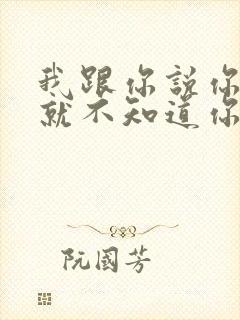 我跟你說你
就不知道你
阮國芳